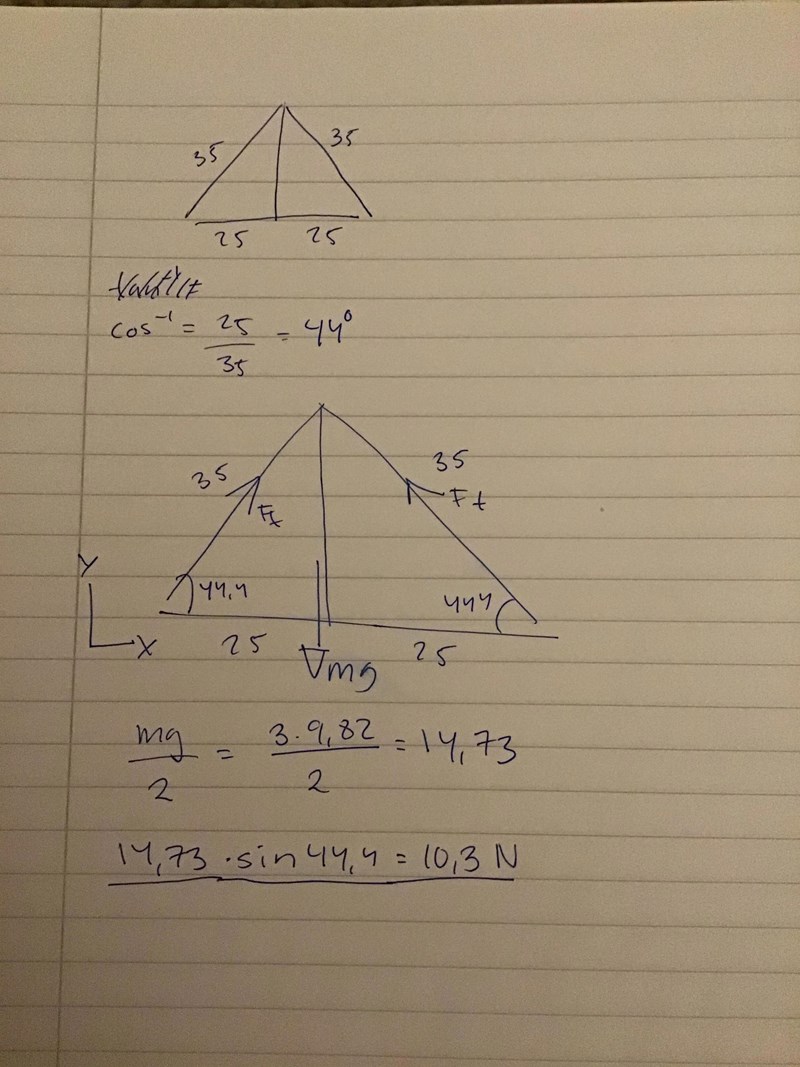 35 35
25 25
cos⁻¹ = 25/35 = 44°
35 35
Ft Ft
Y 44,4 444
X 25 25
mg
mg/2 = 3·9,82/2 = 14,73
14,73 · sin 44,4 = 10,3 N